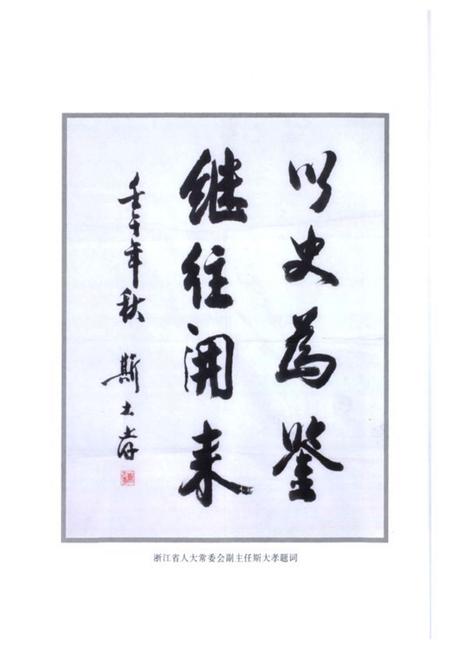 以史为鉴
继往开来
壬午年秋 斯大孝
浙江省人大常委会副主任斯大孝题词